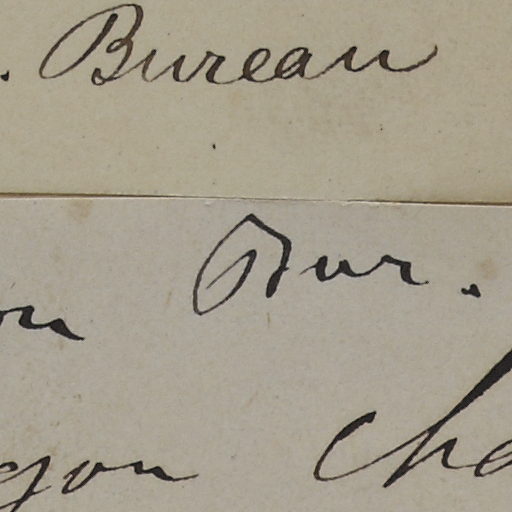 . Bureau
on Bur.
gon Cha